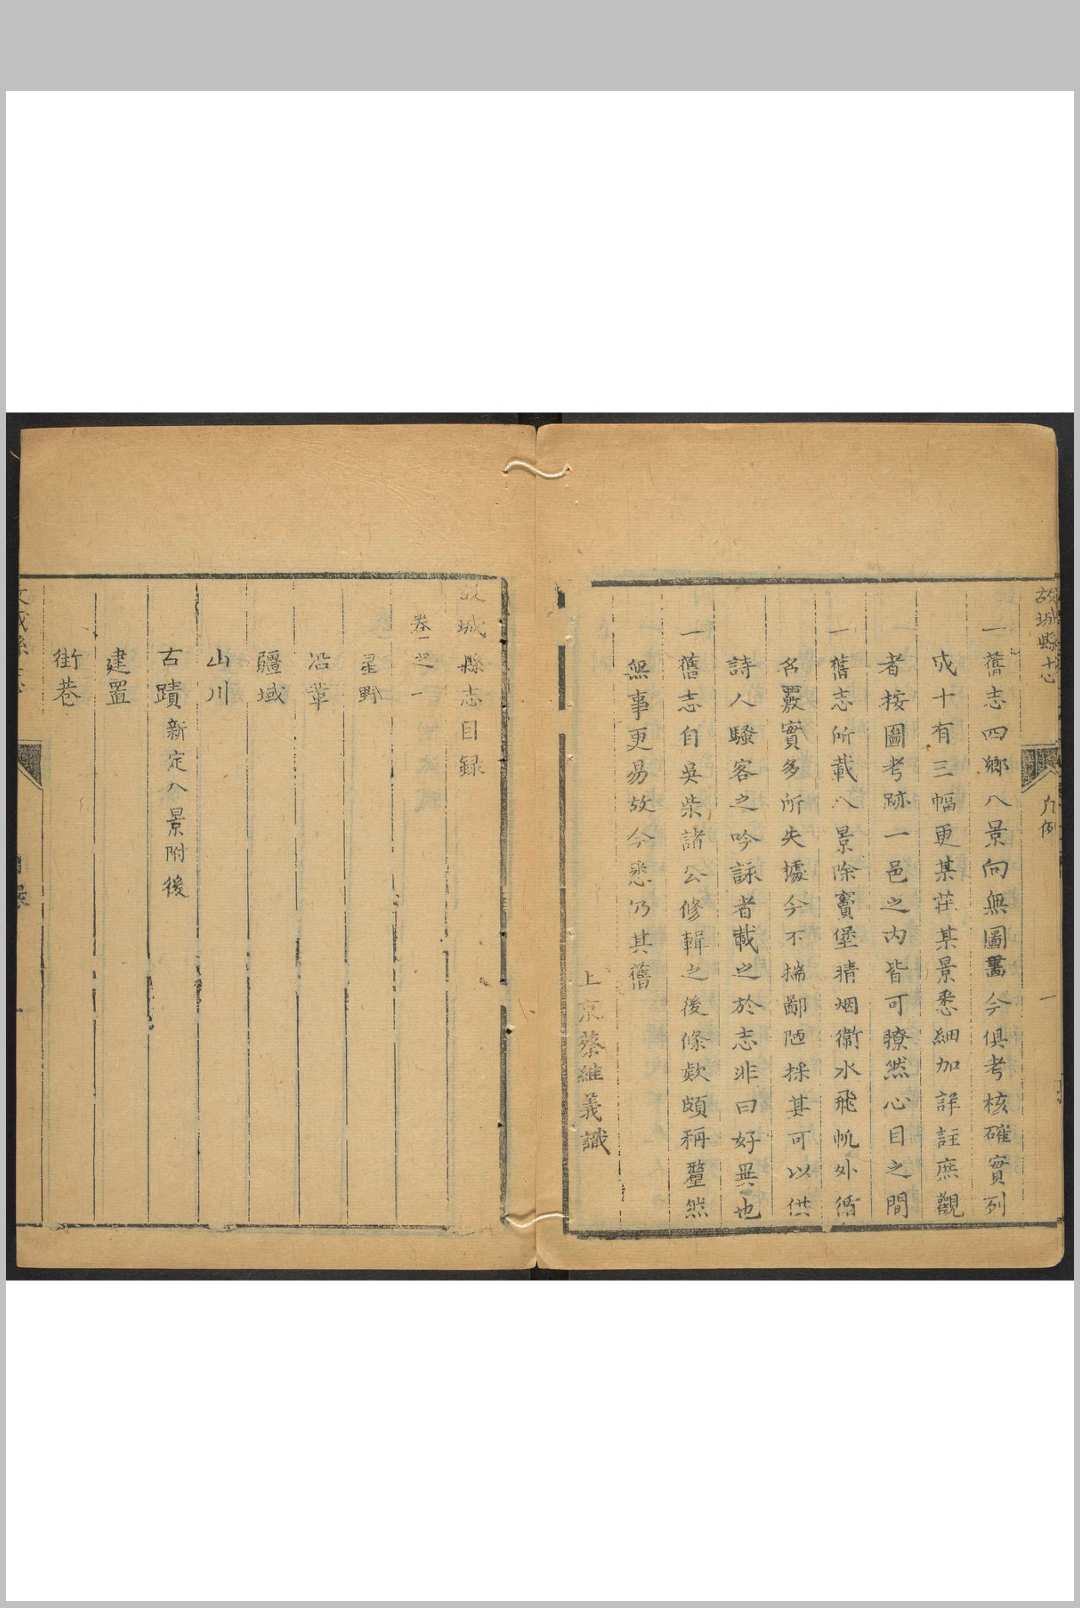 故城縣志
凡例
一
一舊志四鄉八景向無圖畵今俱考核確實列
成十有三幅更某莊某景悉細加詳註庶觀
者按圖考跡一邑之內皆可瞭然心目之間
一舊志所載八景除竇堡晴烟衛水飛帆外循
名覈實多所失據今不揣鄙陋採其可以供
詩人騷客之吟詠者載之於志非曰好異也
一舊志自吳柴諸公修輯之後條欵頗稱釐然
無事更易故今悉乃其舊
上京蔡維義識
故城縣志目録
卷之一
星野
沿革
疆域
山川
古蹟新定八景附後
建置
街巷